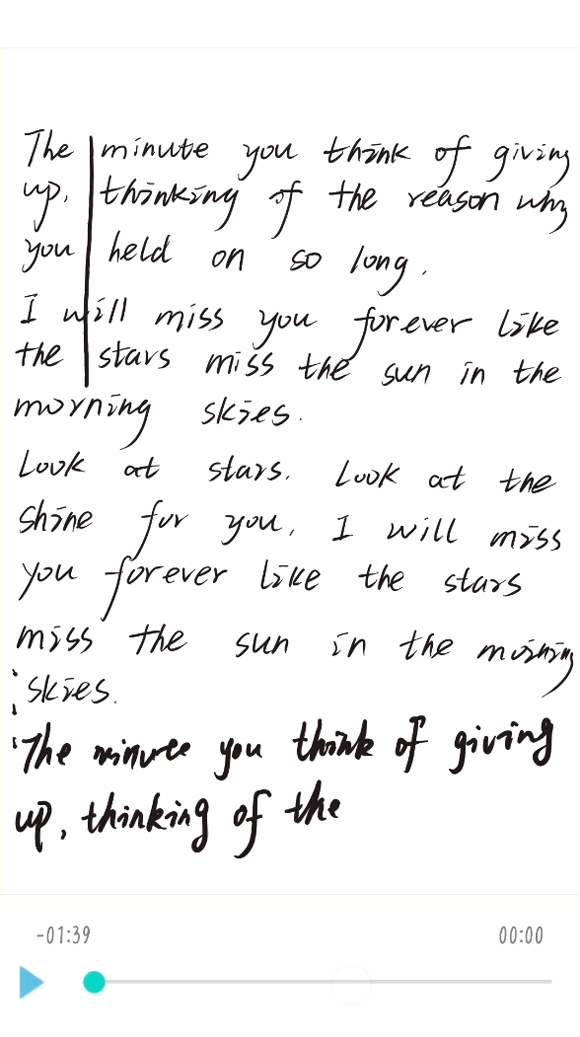 The minute you think of giving
up, thinking of the reason why
you held on so long.
I will miss you forever like
the stars miss the sun in the
morning skies.
Look at stars. Look at the
shine for you, I will miss
you forever like the stars
miss the sun in the morning
skies.
The minute you think of giving
up, thinking of the
-01:39
00:00